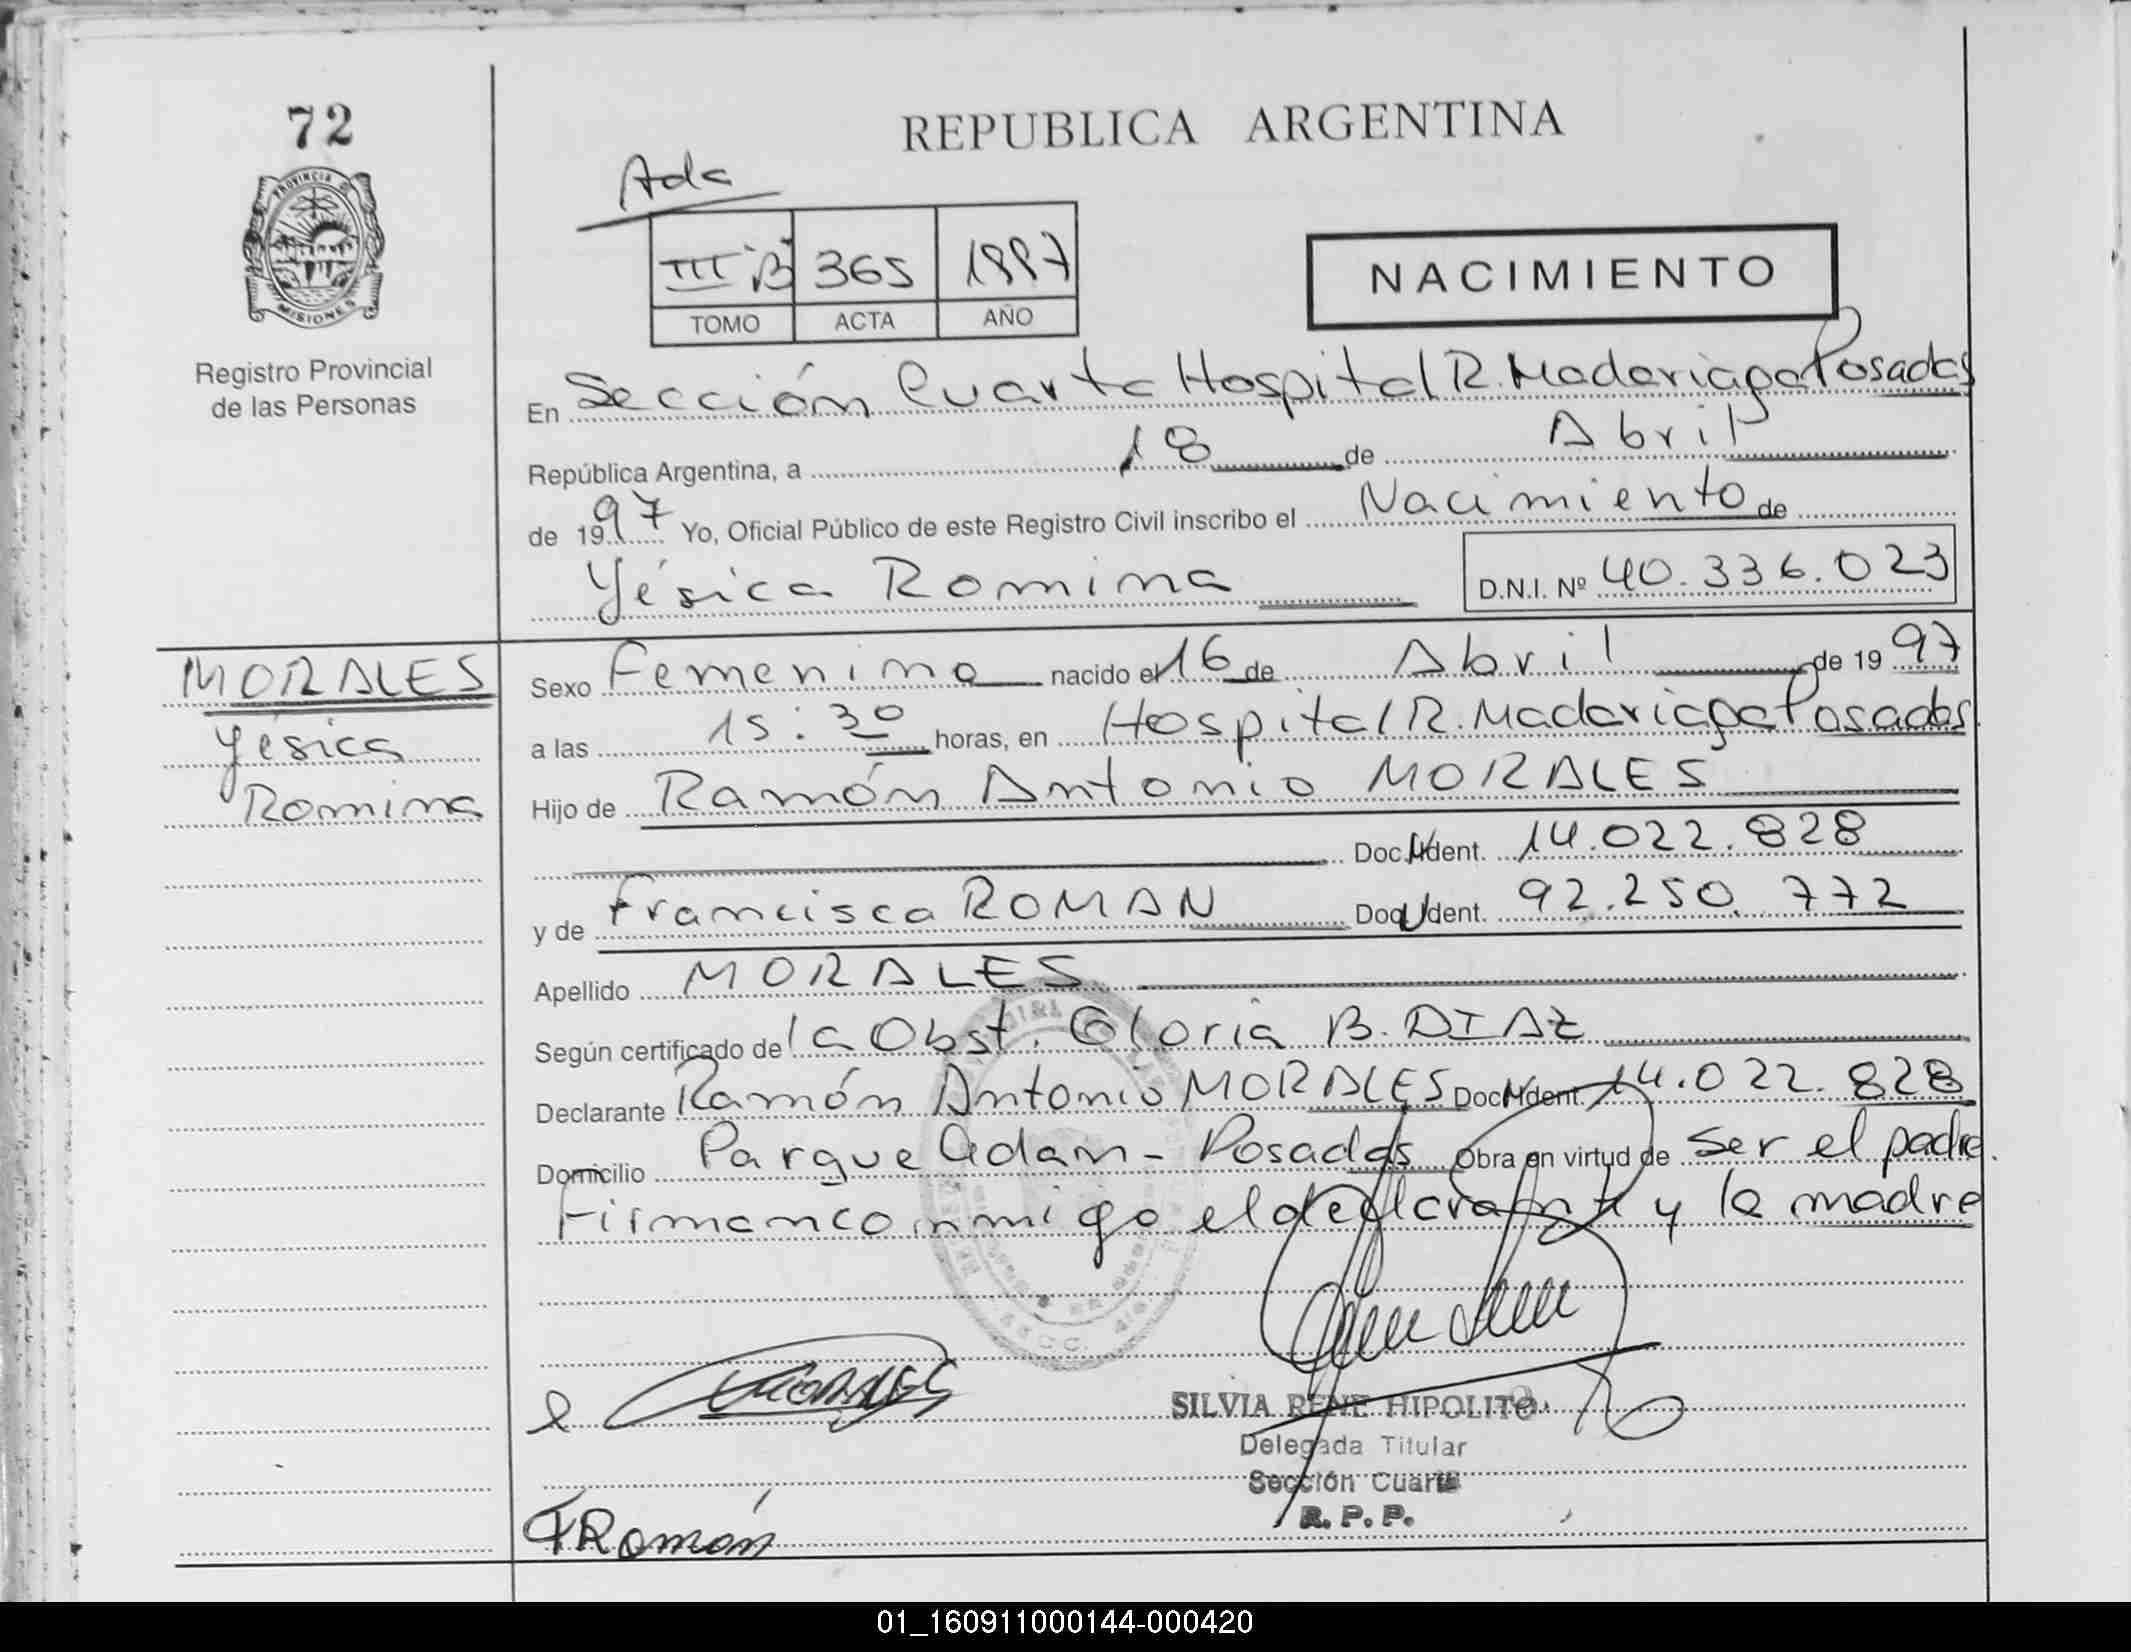 72
REPUBLICA ARGENTINA
PROVINCIA DE
MISIONES
Registro Provincial
de las Personas
Ada
III B 365 1997
TOMO ACTA AÑO
NACIMIENTO
En Sección Cuarta Hospital R. Madariaga Posadas
República Argentina, a 18 de Abril
de 1997 Yo, Oficial Público de este Registro Civil inscribo el Nacimiento de
Yésica Romina D.N.I. Nº 40.336.023
MORALES
Yésica
Romina
Sexo Femenino nacido el 16 de Abril de 1997
a las 15:30 horas, en Hospital R. Madariaga Posadas.
Hijo de Ramón Antonio MORALES
Doc. Ident. 14.022.828
y de Francisca ROMAN Doc. Ident. 92.250.772
Apellido MORALES
Según certificado de la Obst. Gloria B. DIAZ
Declarante Ramón Antonio MORALES Doc. Ident. 14.022.828
Domicilio Parque Adam - Posadas Obra en virtud de Ser el padre.
Firman conmigo el declarante y la madre
MORALES
SILVIA RENE HIPOLITO
Delegada Titular
Sección Cuarta
R. P. P.
F Román
01_160911000144-000420